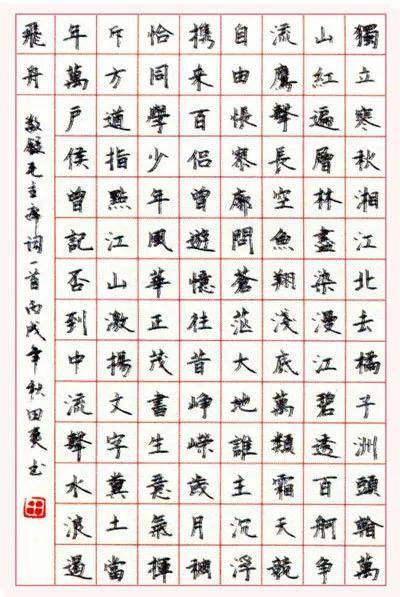 獨立寒秋湘江北去橘子洲頭看萬
山紅遍層林盡染漫江碧透百舸爭
流鷹擊長空魚翔淺底萬類霜天競
自由悵寥廓問蒼茫大地誰主沉浮
攜來百侶曾遊憶往昔崢嶸歲月稠
恰同學少年風華正茂書生意氣揮
斥方遒指點江山激揚文字糞土當
年萬戶侯曾記否到中流擊水浪遏
飛舟
敬錄毛主席詞一首丙戌年秋田英书
田